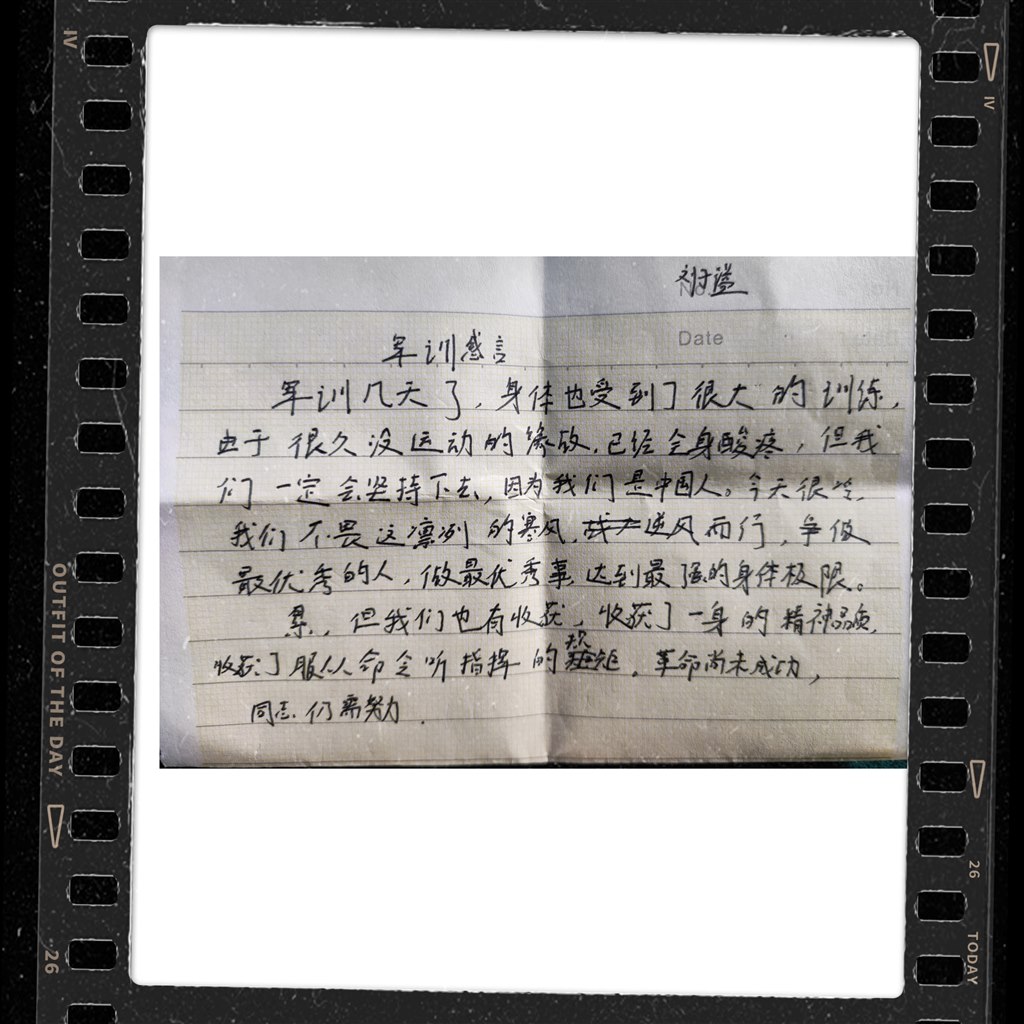 IV
IV
Date
军训感言
军训几天了，身体也受到了很大的训练，
由于很久没运动的缘故，已经全身酸疼，但我
们一定会坚持下去，因为我们是中国人。今天很冷，
我们不畏这凛冽的寒风，逆风而行，争做
最优秀的人，做最优秀事，达到最强的身体极限。
累，但我们也有收获，收获了一身的精神品质，
收获了服从命令听指挥的规矩。革命尚未成功，
同志仍需努力．
OUTFIT OF THE DAY
26
26
TODAY